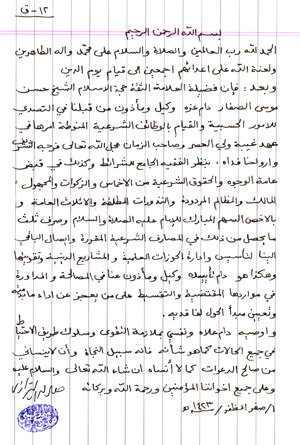 ١٢-ق
بسم الله الرحمن الرحيم
الحمد لله رب العالمين والصلاة والسلام على محمد وآله الطاهرين
ولعنة الله على أعدائهم أجمعين الى قيام يوم الدين
وبعد : فإن فضيلة العلامة الثقة حجة الاسلام الشيخ حسن
موسى الصفار دام عزه وكيل ومأذون من قبلنا في التصدي
للأمور الحسبية والقيام بالوظائف الشرعية المنوطة أمرها في
عهد غيبة ولي العصر وصاحب الزمان عجل الله تعالى فرجه الشريف
وأرواحنا فداه . بنظر الفقيه الجامع للشرائط وكذلك في قبض
عامة الوجوه والحقوق الشرعية من الأخماس والزكوات ومجهول
المالك والمظالم المردودة والنذورات المطلقة والأثلاث العامة و
بالأخص السهم المبارك للإمام عليه الصلاة والسلام وصرف ثلث
ما يحصل من ذلك في المصارف الشرعية المقررة وإيصال الباقي
الينا لتأسيس وإدارة الحوزات العلمية و المشاريع الدينية وتقويتها
وهكذا هو دام تأييده وكيل ومأذون عنا في المصالحة و المداورة
في مواردها المقتضية والتقسيط على من يعجز عن أداء ما عليه
وتعيين مبدأ الحول لفاقديه .
و أوصيه دام علاه ونفسي بملازمة التقوى وسلوك طريق الاحتياط
في جميع الحالات كما هو شأنه فإنه سبيل النجاة وأن لا ينساني
من صالح الدعوات كما لا أنساه ان شاء الله تعالى والسلام عليه
وعلى جميع اخواننا المؤمنين ورحمة الله وبركاته
١/صفر المظفر/١٤٢٣ هـ